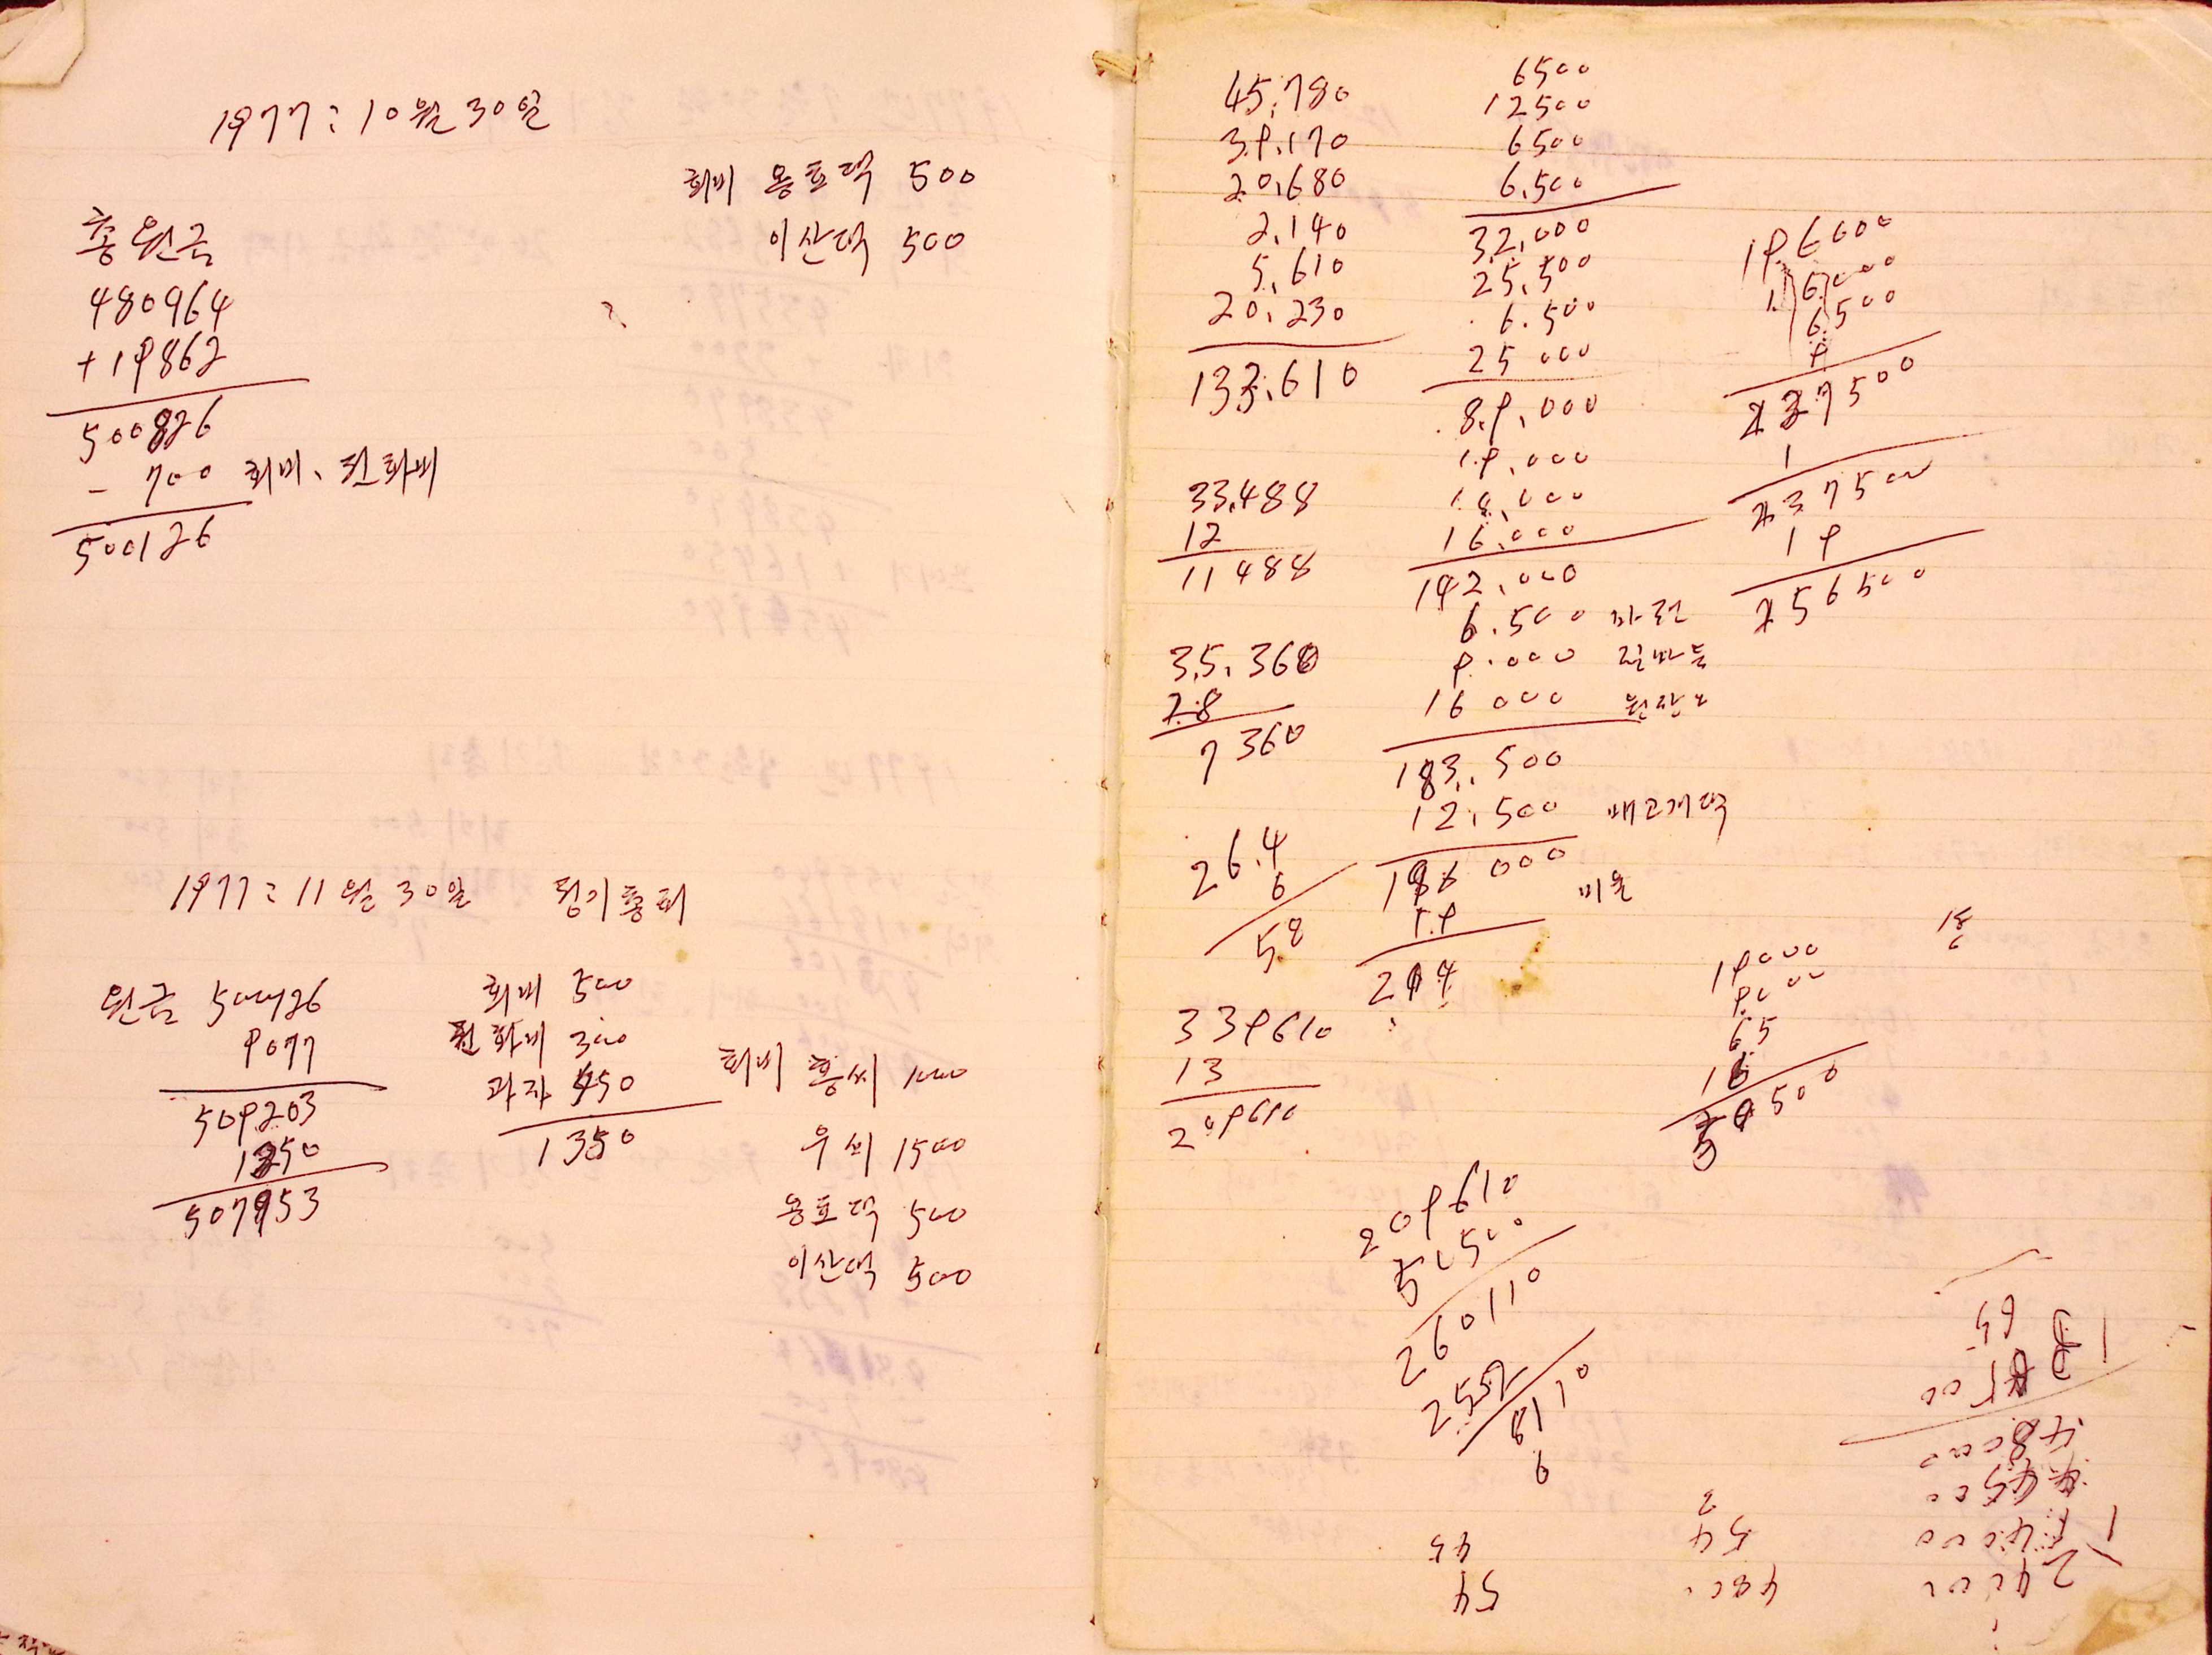 1977: 10월 30일
회비 용호댁 500
이산댁 500
총원금
480964
+19862
500826
- 700 회비、전화비
500126
1977: 11월 30일 정기총회
원금 500126
9077
509203
1350
507953
회비 500
전화비 300
과자 450
1350
회비 홍씨 1000
우씨 1500
용호댁 500
이산댁 500
45.780
39.170
20.680
2.140
5.610
20.230
133.610
33.488
12
11488
35.360
28
7360
26.4
6
58
339610
13
209610
6500
12500
6500
6.500
32.000
25.500
6.500
25 000
89.000
19.000
18.000
16.000
142.000
6.500
9.000
16 000
183.500
12.500 배고개댁
196 000
19
214
196000
237500
19
256500
19000
9000
65
16
50500
209610
50500
260110
2552
8110
6
65
48000
45
54
54
480